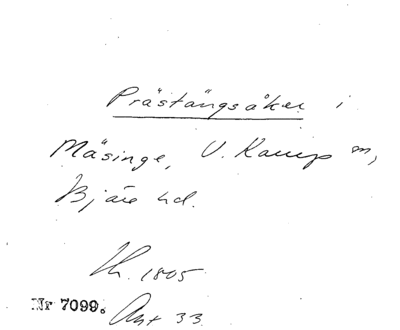 Prästängsåker i
Mäsinge, V. Karup sn,
Bjäre hd.
Lh. 1805
Nr 7099. Akt 33